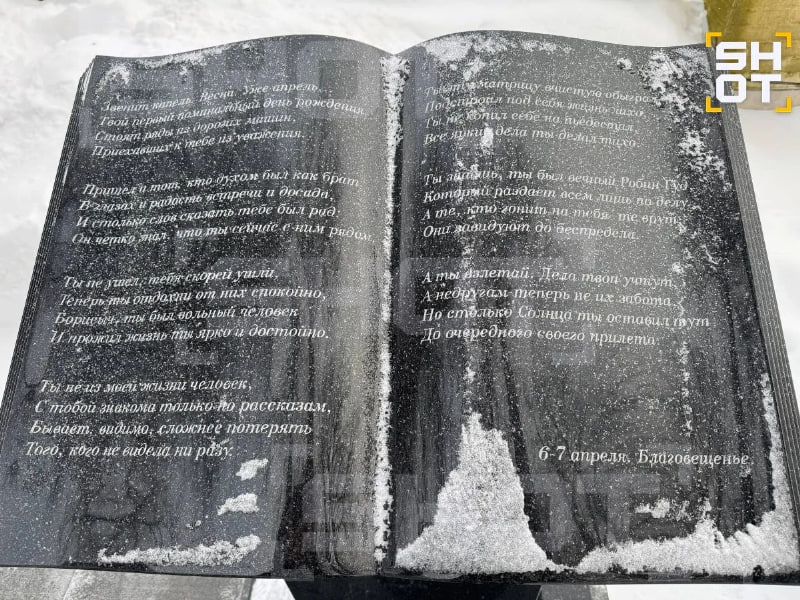 Звенит капель. Весна. Уже апрель...
Твой первый поминальный день рождения.
Стоят ряды из дорогих машин,
Приехавших к тебе из уважения.
Пришел и тот, кто духом был как брат
В глазах и радость встречи и досада,
И столько слов сказать тебе был рад:
Он четко знал, что ты сейчас с ним рядом.
Ты не ушел, тебя скорей ушли,
Теперь ты отдохни от них спокойно,
Борисыч, ты был вольный человек
И прожил жизнь ты ярко и достойно.
Ты не из моей жизни человек,
С тобой знакома только по рассказам,
Бывает, видимо, сложнее потерять
Того, кого не видела ни разу.
Ты эту матрицу вчистую обыграл
Подстроил под себя жизнь
Ты не копил себе на пьедестал,
Все яркие дела ты делал тихо.
Ты знаешь, ты был вечный Робин Гуд
Который раздает всем лишь по делу,
А те, кто гонит на тебя, те врут,
Они завидуют до беспредела.
А ты взлетай. Дела твои учтут,
А недругам теперь не их забота,
Но столько Солнца ты оставил тут
До очередного своего прилета
6-7 апреля. Благовещенье.
SHOT